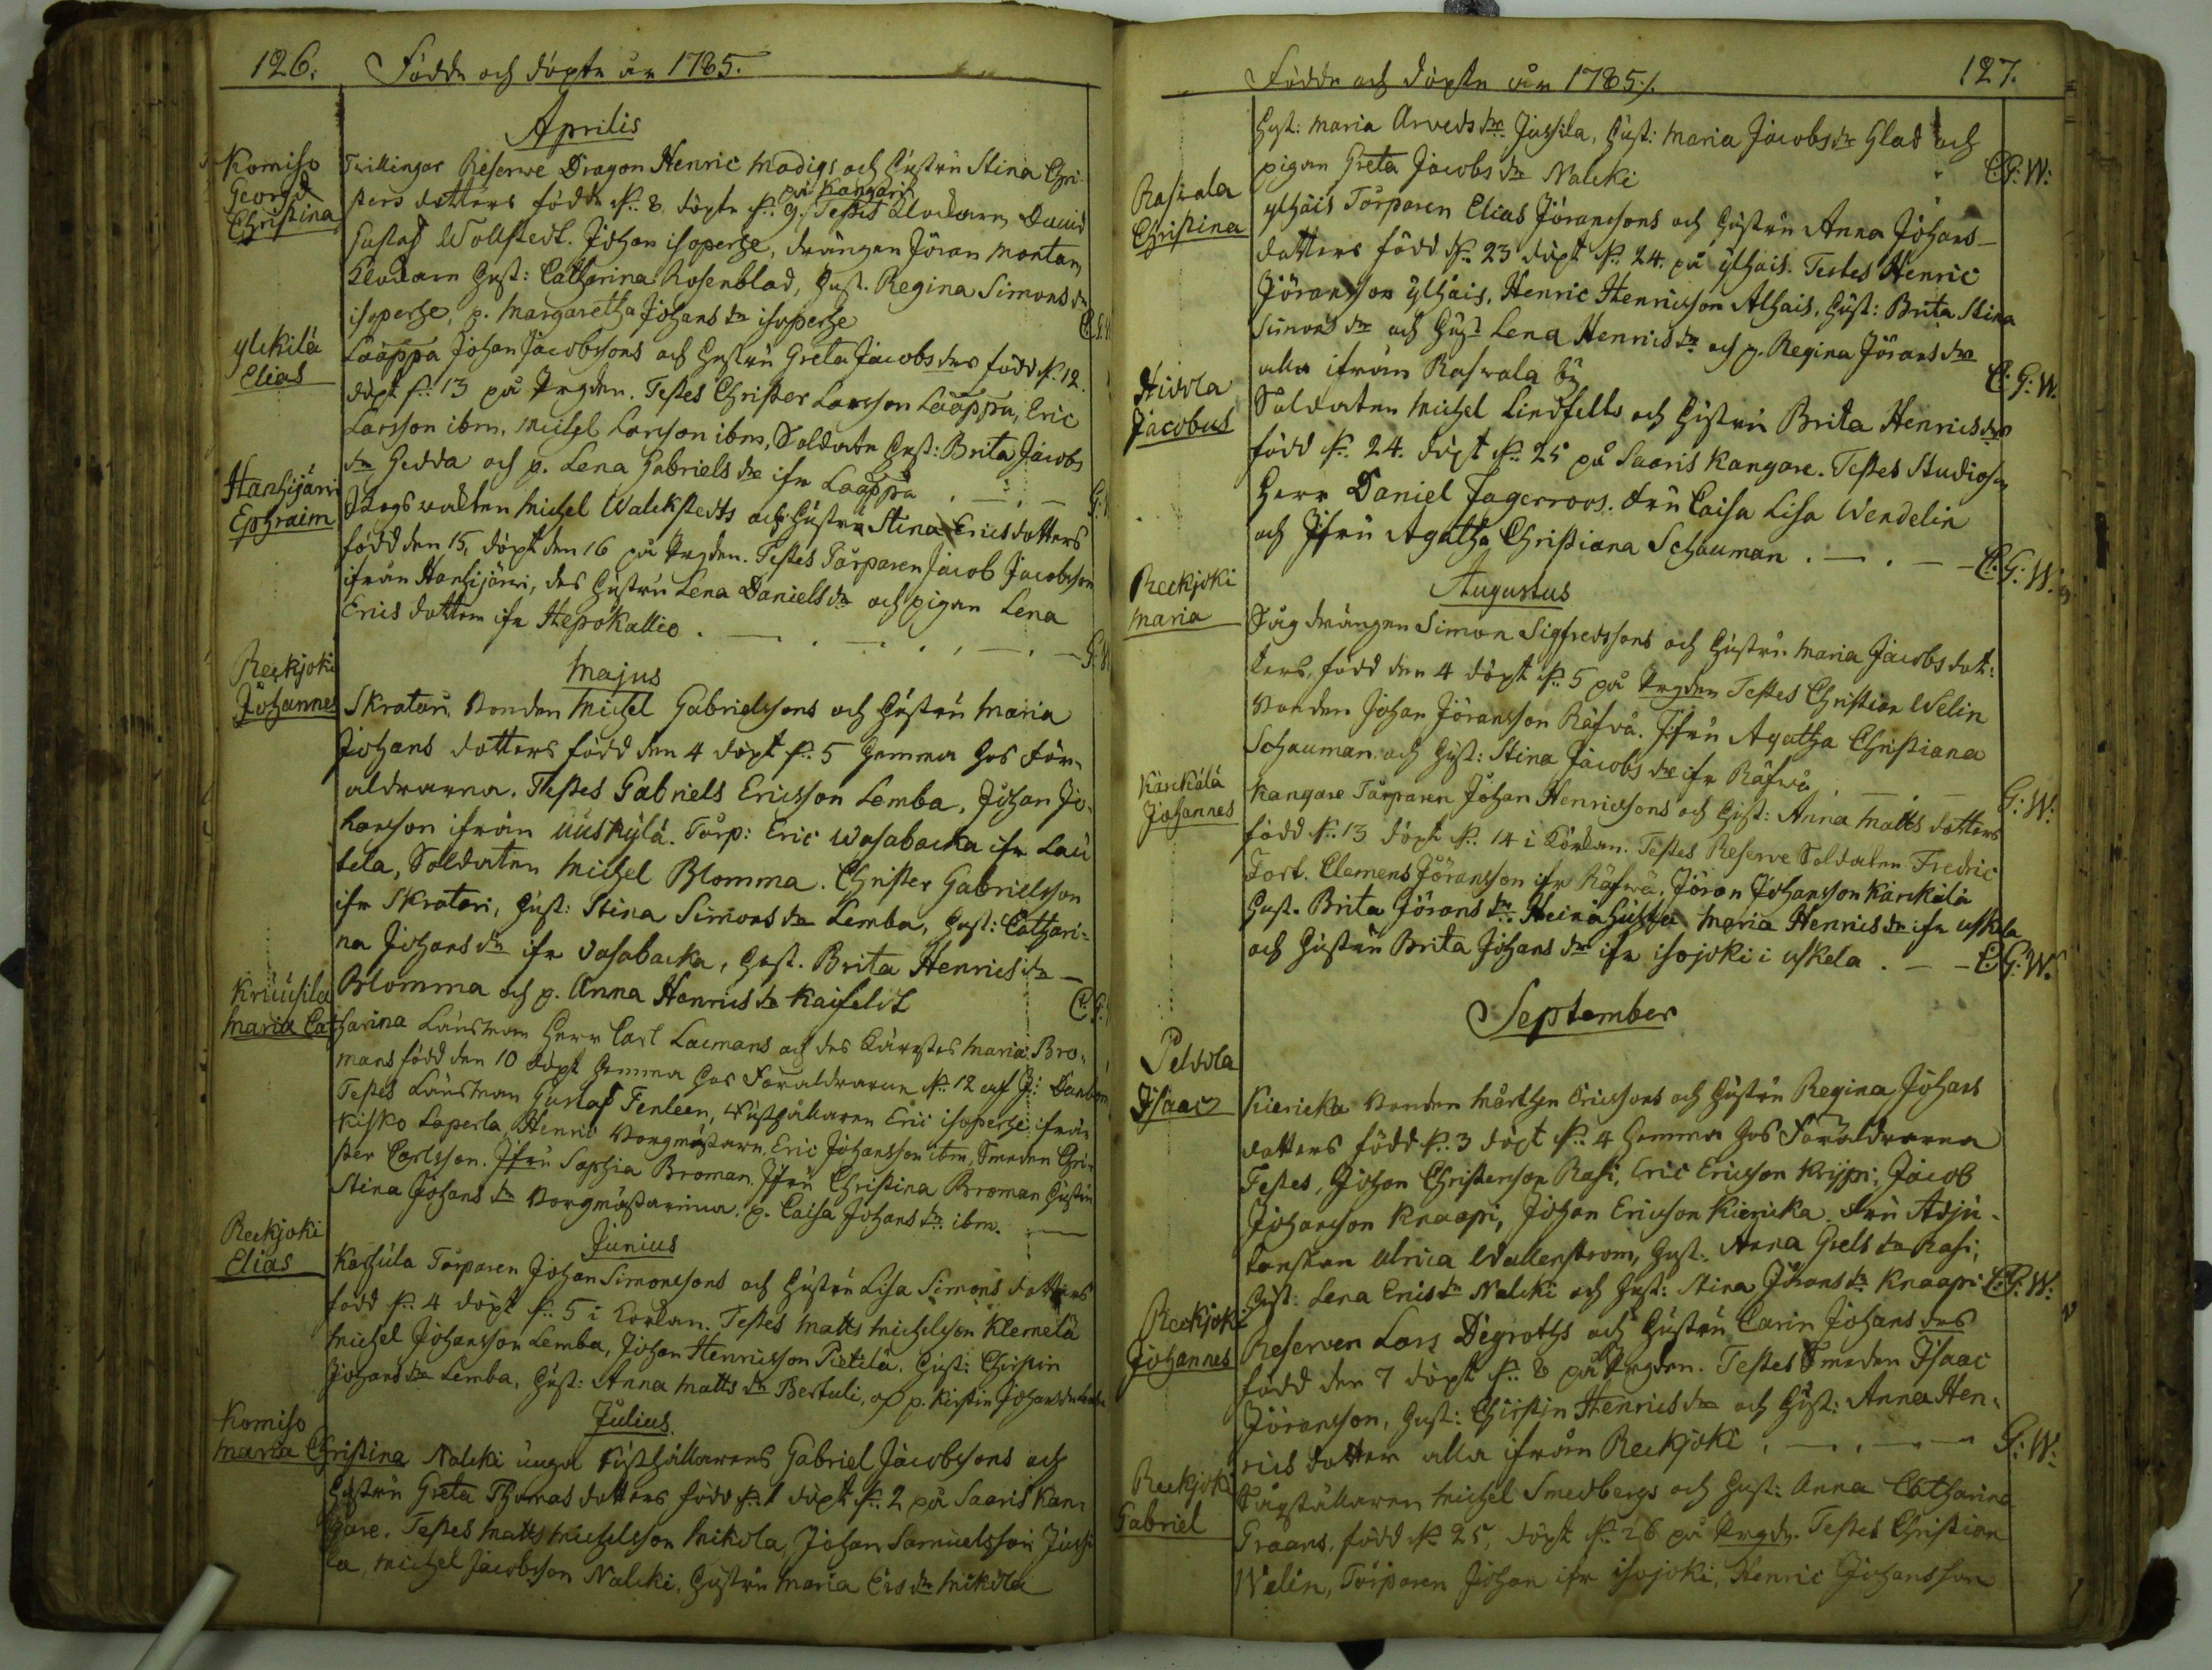 126. Födde och döpte år 1785.
Aprilis
Komiso
Georg &
Christina
Twillingar Reserve Dragon Henric Modigs och hustru Stina Chri-
sters dotters födde d. 8 döpte d. 9. på Kangari Testes Klockaren David
Gustaf Wollstedt. Johan isoperhe, drängen Jöran Montan
Klockaren Hust: Catharina Rosenblad, Hust. Regina Simons dr
isoperhe, p. Margaretha Johans dr isoperhe
ylikilä
Elias
Laappa Johan Jacobssons och hustru Greta Jacobs drs född d. 12.
döpt d. 13 på Prgden. Testes Christer Larsson Laappa, Eric
Larsson ibm, Michel Larsson ibm, Soldate Hust: Brita Jacobs
dr Gedda och p. Lena Gabriels dr ifr Laappa
Hanhijärvi
Ephraim
Michel Walckstedts och hustru Stina Ericsdotters
född den 15, döpt den 16 på Prgden. Testes Torparen Jacob Jacobsson
ifrån Hanhijärvi, des hustru Lena Daniels dr och pigan Lena
Erics dotter ifr Hepokallio
Reckjoki
Johannes
Majus
Skratari Bonden Michel Gabrielssons och hustru Maria
Johans dotters född den 4 döpt d. 5 hemma hos För-
äldrarna. Testes Gabriels Ericsson Lemba, Johan Jo-
hansson ifrån Uuskylä. Torp: Eric Wasabacka ifr Lau
tela, Soldaten Michel Blomma. Christer Gabrielsson
ifr Skratari, hust: Stina Simons dr Lemba, hust: Cathari-
na Johans dr ifr Vasabacka, hust. Brita Henrics dr
Blomma och p. Anna Henrics dr Kaifeldt
Kruusila
Maria Catharina Länsman Herr Carl Lacmans och des Käresta Maria Bro-
mans född den 10 döpt hemma hos Föräldrarne d. 12
Testes Länsman Gustaf Tenleen, Rusthållaren Eric isoperhe ifrån
Kisko Laperla, Henric Borgmästare, Eric Johansson ibm, Smeden Chri-
ster Carlsson. Jfru Sophia Broman, Jfru Christina Broman hustru
Stina Johans dr Borgmästarinna, p. Caisa Johans dr ibm.
Reckjoki
Elias
Junius
Karhula Torparen Johan Simonssons och hustru Lisa Simons dotters
född d. 4 döpt d. 5 i Körkan. Testes Matts Michelsson Klemelä
Michel Johansson Lemba, Johan Henricsson Pietilä, Hust: Christin
Johans dr Lemba, Hust: Anna Matts dr Bertuli, och p. Kirstin Johans dr
Komiso
Julius
Maria Christina Nalcki unga Rusthållarens Gabriel Jacobssons och
hustru Greta Thomas dotters född d. 1 döpt d. 2 på Saaris Kan-
gare. Testes Matts Michelsson Mikola, Johan Samuelsson Jussi
la, Michel Jacobsson Nalcki, hustru Maria Ers dr Mikola
Födde och döpte år 1785. 127.
Hust: Maria Arveds dr Jussila, Hust: Maria Jacobs dr Glad och
pigan Greta Jacobs dr Nalcki C:G:W:
Rasvala
Christina
ylhäis Torparen Elias Jöranssons och hustru Anna Johans-
dotters född d. 23 döpt d. 24. på ylhäis. Testes Henric
Jöransson ylhäis, Henric Henricsson Alhais, Hust: Brita Stina
Simons dr och Hust Lena Henrics dr och p. Regina Jörans dr
alla ifrån Rasvala by C:G:W.
Hidola
Jacobus
Soldaten Michel Lindfelts och hustru Brita Henrics drs
född d. 24. döpt d. 25 på Saaris Kangare. Testes Studiosen
Herr Daniel Fagerroos. Fru Caisa Lisa Wendelin
och Jfru Agatha Christiana Schauman C:G:W.
Reckjoki
Maria
Augustus
Såg drängen Simon Sigfredssons och hustru Maria Jacobs dot-
ters, född den 4 döpt d. 5 på Prgden Testes Christian Welin
Bonden Johan Jöransson Räfvä. Jfru Agatha Christiana
Schauman och Hust: Stina Jacobs dr ifr Räfvä G:W.
Kärckälä
Johannes
Kangare Torparen Johan Henricssons och Hust: Anna Matts dotters
född d. 13 döpt d. 14 i Körkan. Testes Reserve Soldaten Fredric
Fort. Clemens Jöransson ifr Räfvä, Jöran Johansson Kärckälä
Hust. Brita Jörans dr Maria Henrics dr ifr uskela
och hustru Brita Johans dr ifr isojoki i uskela C:G:W.
September
Peldola
Isaac
Kiericka Bonden Mårthen Ericssons och hustru Regina Johans
dotters född d. 3 döpt d. 4 hemma hos Föräldrarna
Testes, Johan Christersson Rasi, Eric Ericsson Krippi, Jacob
Johansson Knaapi, Johan Ericsson Kiericka. Fru Adju-
tanskan Ulrica Wallenstrom, Hust. Anna Grels dr Rasi,
Hust: Lena Erics dr Nalcki och Hust: Stina Jörans dr Knaapi C:G:W:
Reckjoki
Johannes
Reserven Lars Degroths och hustru Carin Johans drs
född den 7 döpt d. 8 på Prgden. Testes Smeden Isaac
Jöransson, Hust: Christin Henrics dr och Hust: Anna Hen-
rics dotter alla ifrån Reckjoki G:W:
Reckjoki
Gabriel
Sågställaren Michel Smedbergs och Hust: Anna Catharina
Graans, född d. 25, döpt d. 26 på Prgdn. Testes Christian
Welin, Torparen Johan ifr isojoki, Henric Johansson